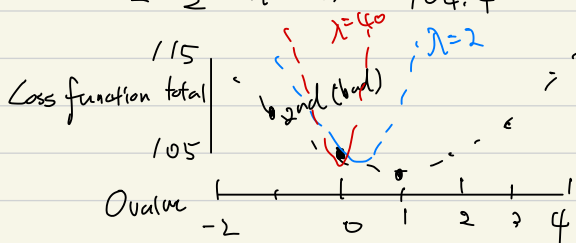 115
λ=40
λ=2
Loss function total
b, 2nd (bad)
105
Ovalue
-2 0 1 2 3 4